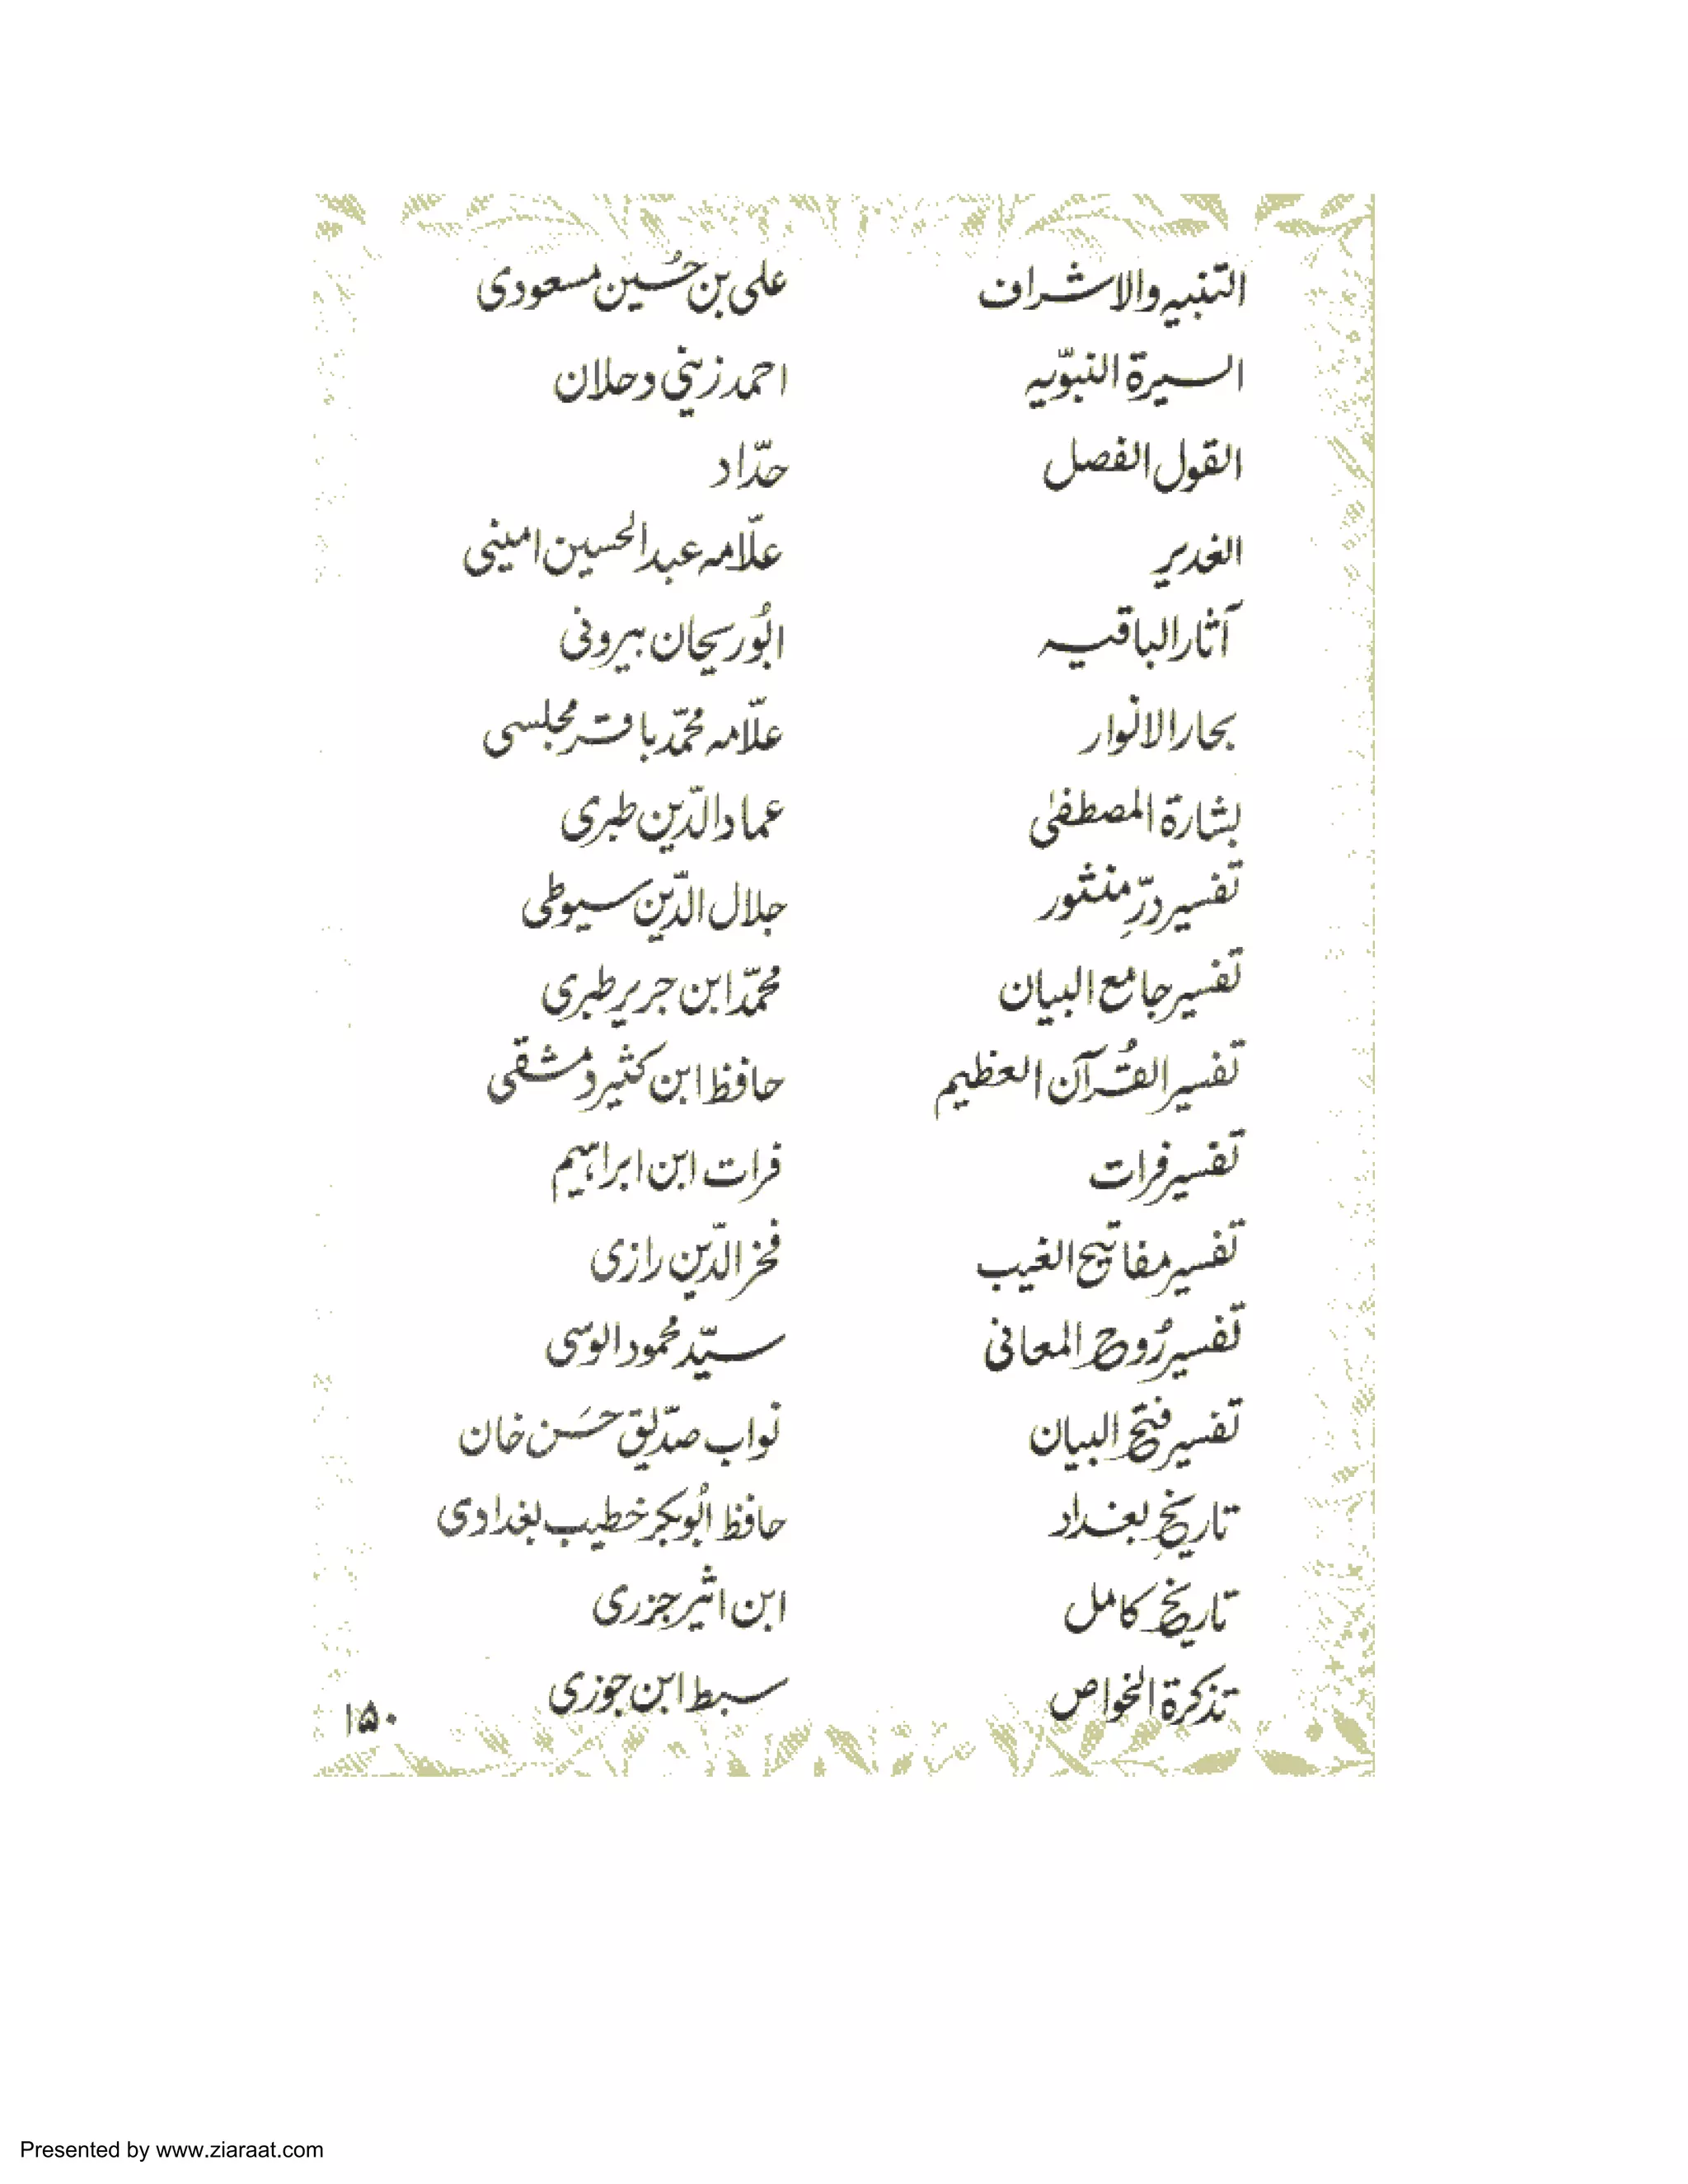 التنبیہ والاشراف علی بن حُسین مسعودی
السیرۃ النبوّیہ احمد زینی دحلان
القول الفصل حدّاد
الغدیر علّامہ عبدالحسین امینی
آثار الباقیہ ابُوریحان بیرونی
بحار الانوار علّامہ محمّد باقر مجلسی
بشارۃ المصطفیٰ عماد الدّین طبری
تفسیر درِّ منثور جلال الدّین سیوطی
تفسیر جامع البیان محمّد ابن جریر طبری
تفسیر القُرآن العظیم حافظ ابن کثیر دمشقی
تفسیر فرات فرات ابن ابراہیم
تفسیر مفاتیح الغیب فخر الدّین رازی
تفسیر رُوح المعانی سیّد محمود الوسی
تفسیر فتح البیان نواب صدّیق حَسن خان
تاریخِ بغداد حافظ ابُوبکر خطیب بغدادی
تاریخ کامل ابن اثیر جزری
تذکرۃ الخواص سبط ابن جوزی
۱۵۰
Presented by www.ziaraat.com